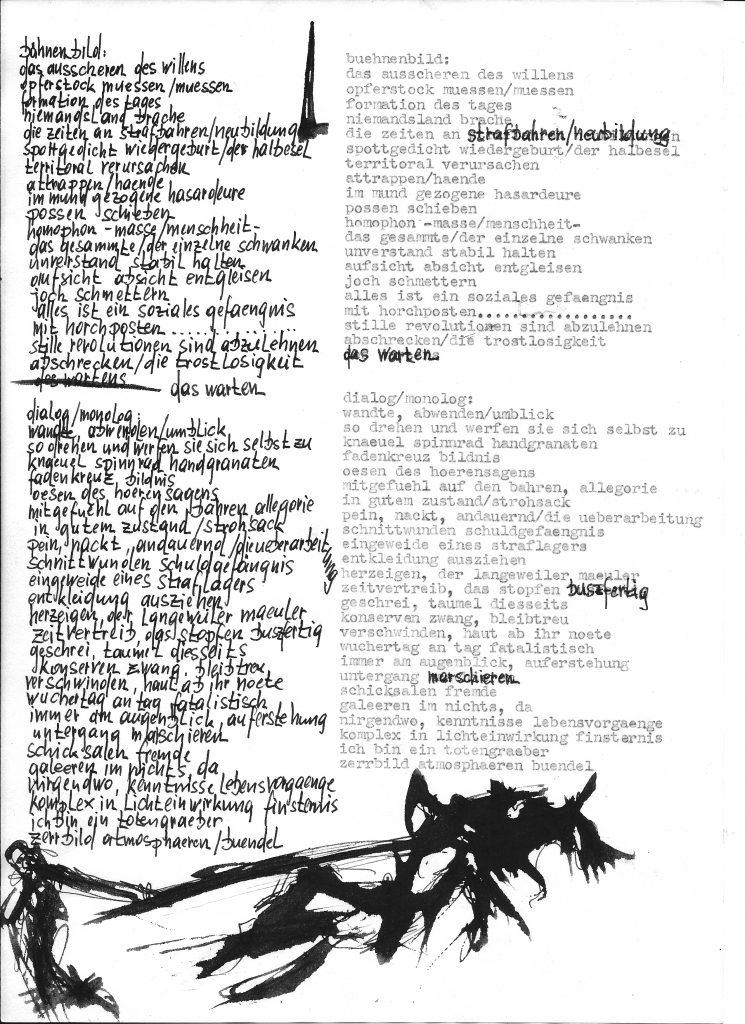 bühnenbild:
das ausscheren des willens
opferstock muessen/muessen
formation des tages
niemandsland brache
die zeiten an strafbahren/neubildung
spottgedicht wiedergeburt/der halbesel
territoral verursachen
attrappen/haende
im mund gezogene hasardeure
possen schieben
homophon -masse/menschheit-
das gesammte/der einzelne schwanken
unverstand stabil halten
aufsicht absicht entgleisen
joch schmettern
alles ist ein soziales gefaengnis
mit horchposten................
stille revolutionen sind abzulehnen
abschrecken/die trostlosigkeit
das wartens das warten
dialog/monolog:
wandte, abwenden/umblick
so drehen und werfen sie sich selbst zu
knaeuel spinnrad handgranaten
fadenkreuz, bildnis
oesen des hoerensagens
mitgefuehl auf den bahren allegorie
in gutem zustand/strohsack
pein, nackt, andauernd/die ueberarbeitung
schnittwunden schuldgefängnis
eingeweide eines straflagers
entkleidung ausziehen
herzeigen, der langeweiler maeuler
zeitvertreib, das stopfen buszfertig
geschrei, taumel diesseits
konserven zwang, bleibtreu
verschwinden, haut ab ihr noete
wuchertag an tag fatalistisch
immer am augenblick, auferstehung
untergang marschieren
schicksalen fremde
galeeren im nichts, da
nirgendwo, kenntnisse lebensvorgaenge
komplex in lichteinwirkung finsternis
ich bin ein totengraeber
zerrbild atmosphaeren/buendel
buehnenbild:
das ausscheren des willens
opferstock muessen/muessen
formation des tages
niemandsland brache
die zeiten an strafbahren/neubildung
spottgedicht wiedergeburt/der halbesel
territoral verursachen
attrappen/haende
im mund gezogene hasardeure
possen schieben
homophon -masse/menschheit-
das gesammte/der einzelne schwanken
unverstand stabil halten
aufsicht absicht entgleisen
joch schmettern
alles ist ein soziales gefaengnis
mit horchposten...................
stille revolutionen sind abzulehnen
abschrecken/die trostlosigkeit
das warten
dialog/monolog:
wandte, abwenden/umblick
so drehen und werfen sie sich selbst zu
knaeuel spinnrad handgranaten
fadenkreuz bildnis
oesen des hoerensagens
mitgefuehl auf den bahren, allegorie
in gutem zustand/strohsack
pein, nackt, andauernd/die ueberarbeitung
schnittwunden schuldgefaengnis
eingeweide eines straflagers
entkleidung ausziehen
herzeigen, der langeweiler maeuler
zeitvertreib, das stopfen buszfertig
geschrei, taumel diesseits
konserven zwang, bleibtreu
verschwinden, haut ab ihr noete
wuchertag an tag fatalistisch
immer am augenblick, auferstehung
untergang marschieren
schicksalen fremde
galeeren im nichts, da
nirgendwo, kenntnisse lebensvorgaenge
komplex in lichteinwirkung finsternis
ich bin ein totengraeber
zerrbild atmosphaeren buendel